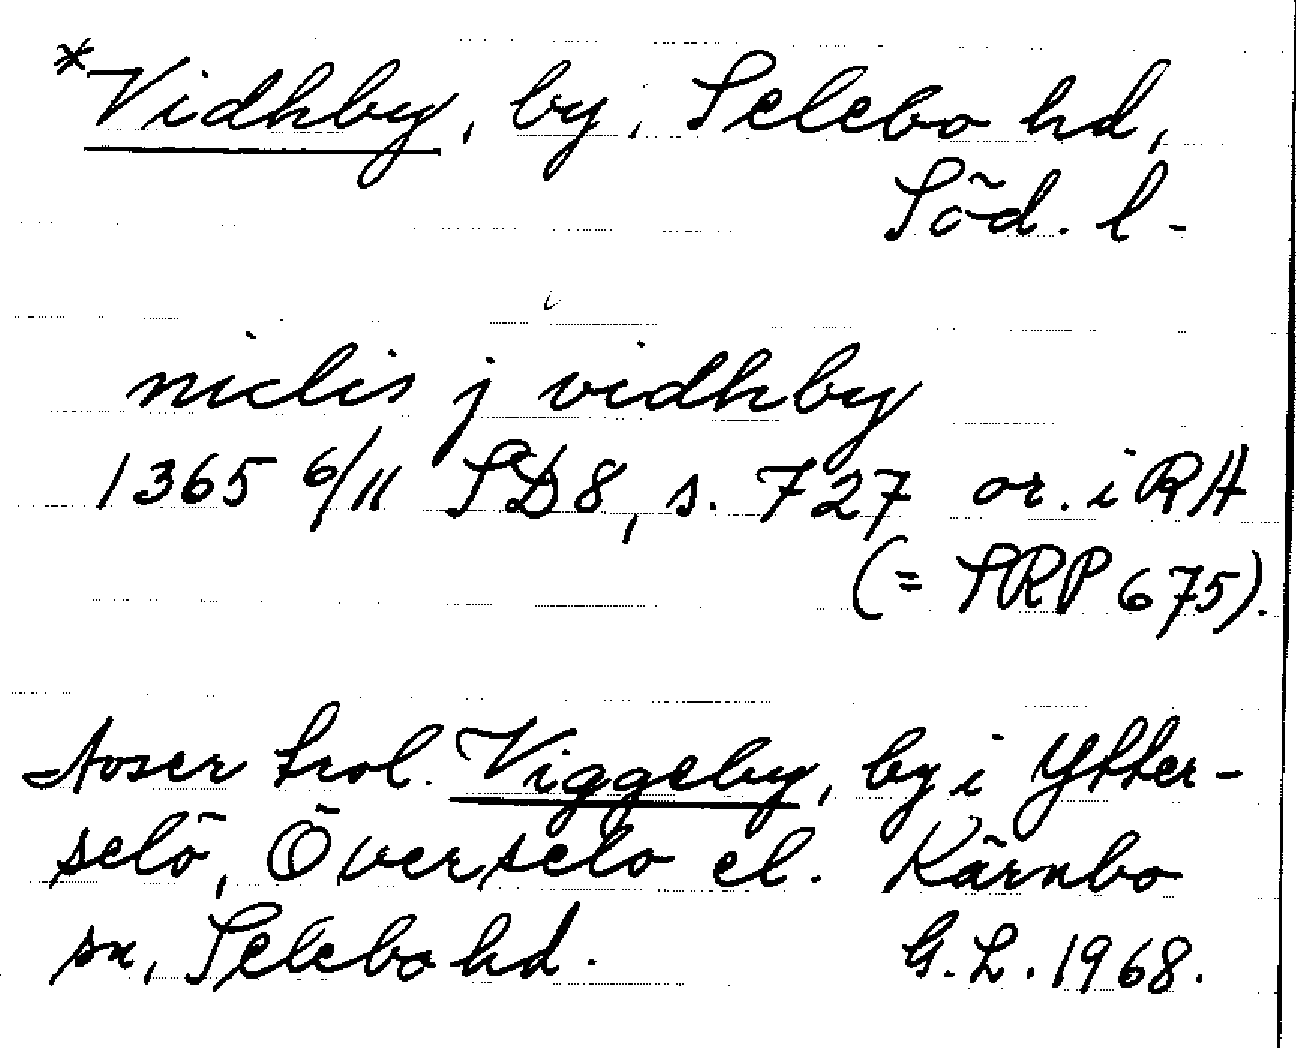 *Vidhby, by, Selebo hd,
Söd. l.
niclis j vidhby
1365 6/11 SD8, s. 727 or. i RA
(= SRP 675).
Avser trol. Viggeby, by i Ytter-
selö, Överselö el. Kärnbo
sn, Selebo hd. G. L. 1968.